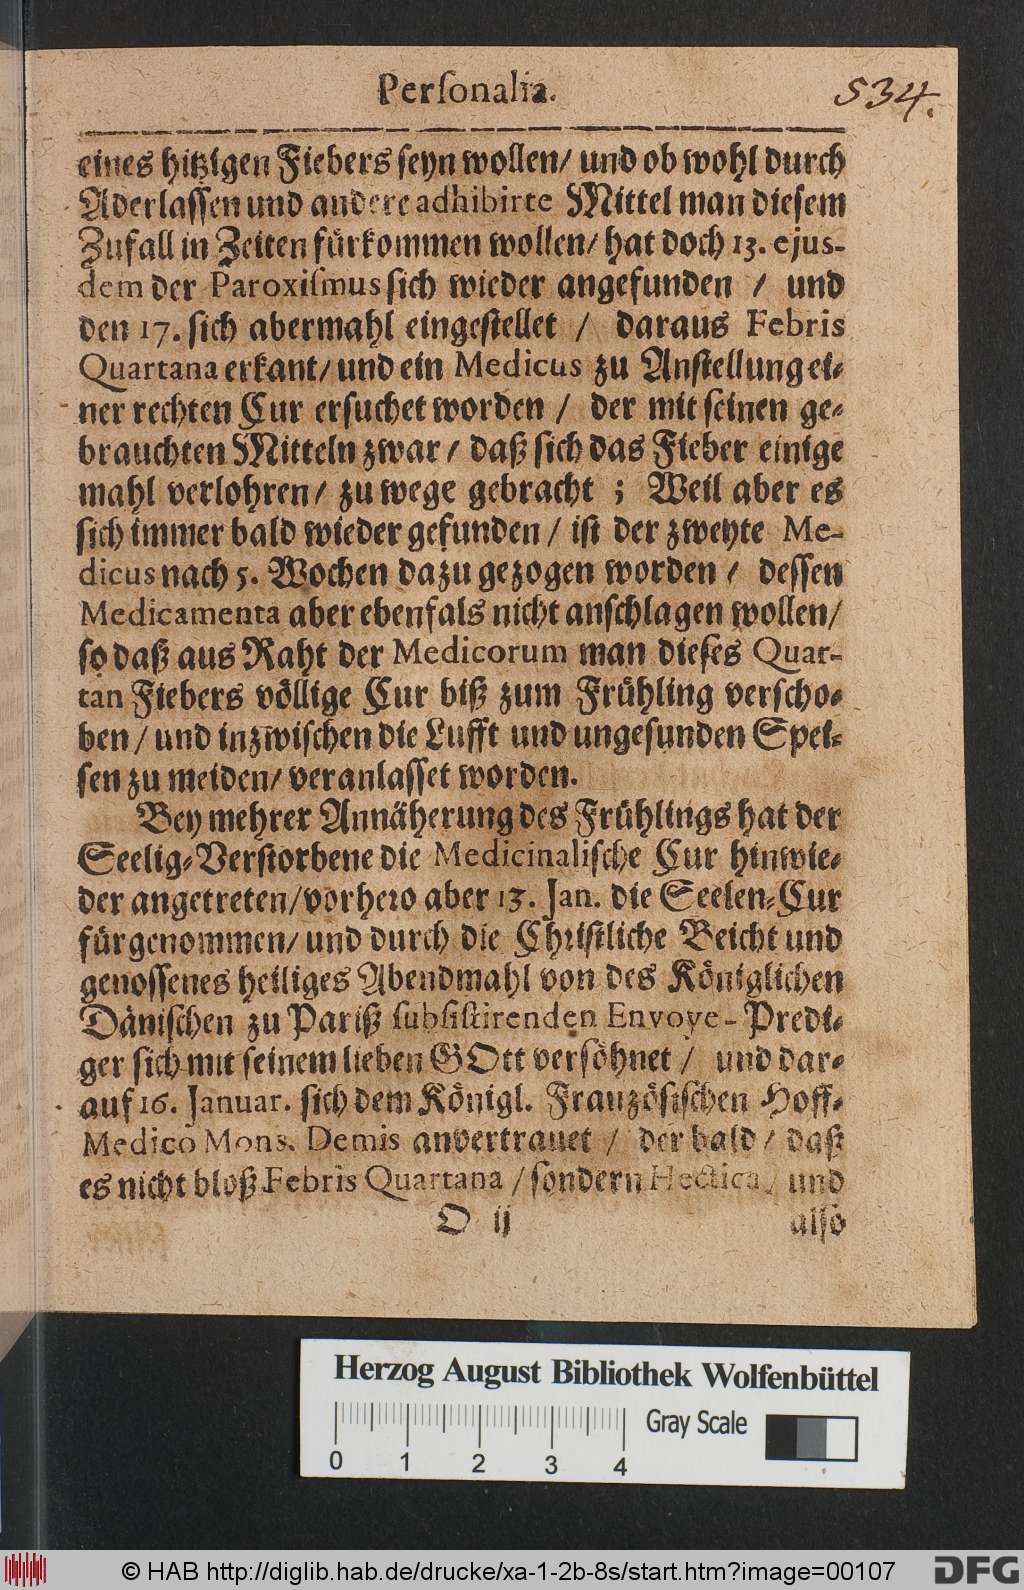 Personalia.
534.
eines hitzigen Fiebers seyn wollen/ und ob wohl durch
Aderlassen und andere adhibirte Mittel man diesem
Zufall in Zeiten fürkommen wollen/ hat doch 13. ejus-
dem der Paroxiſmus sich wieder angefunden / und
den 17. sich abermahl eingestellet / daraus Febris
Quartana erkant/ und ein Medicus zu Anstellung ei-
ner rechten Cur ersuchet worden / der mit seinen ge-
brauchten Mitteln zwar/ daß sich das Fieber einige
mahl verlohren/ zu wege gebracht ; Weil aber es
sich immer bald wieder gefunden/ ist der zweyte Me-
dicus nach 5. Wochen dazu gezogen worden / dessen
Medicamenta aber ebenfals nicht anschlagen wollen/
so daß aus Raht der Medicorum man dieses Quar-
tan Fiebers völlige Cur biß zum Frühling verscho-
ben / und inzwischen die Lufft und ungesunden Spei-
sen zu meiden/ veranlasset worden.
Bey mehrer Annäherung des Frühlings hat der
Seelig-Verstorbene die Medicinalische Cur hinwie-
der angetreten/ vorhero aber 13. Jan. die Seelen-Cur
fürgenommen/ und durch die Christliche Beicht und
genossenes heiliges Abendmahl von des Königlichen
Dänischen zu Pariß ſubſiſtirenden Envoye-Predi-
ger sich mit seinem lieben GOtt versöhnet / und dar-
auf 16. Januar. sich dem Königl. Französischen Hoff-
Medico Mons. Demis anvertrauet / der bald / daß
es nicht bloß Febris Quartana / sondern Hectica, und
O ij also
Herzog August Bibliothek Wolfenbüttel
Gray Scale
0 1 2 3 4
© HAB http://diglib.hab.de/drucke/xa-1-2b-8s/start.htm?image=00107
DFG